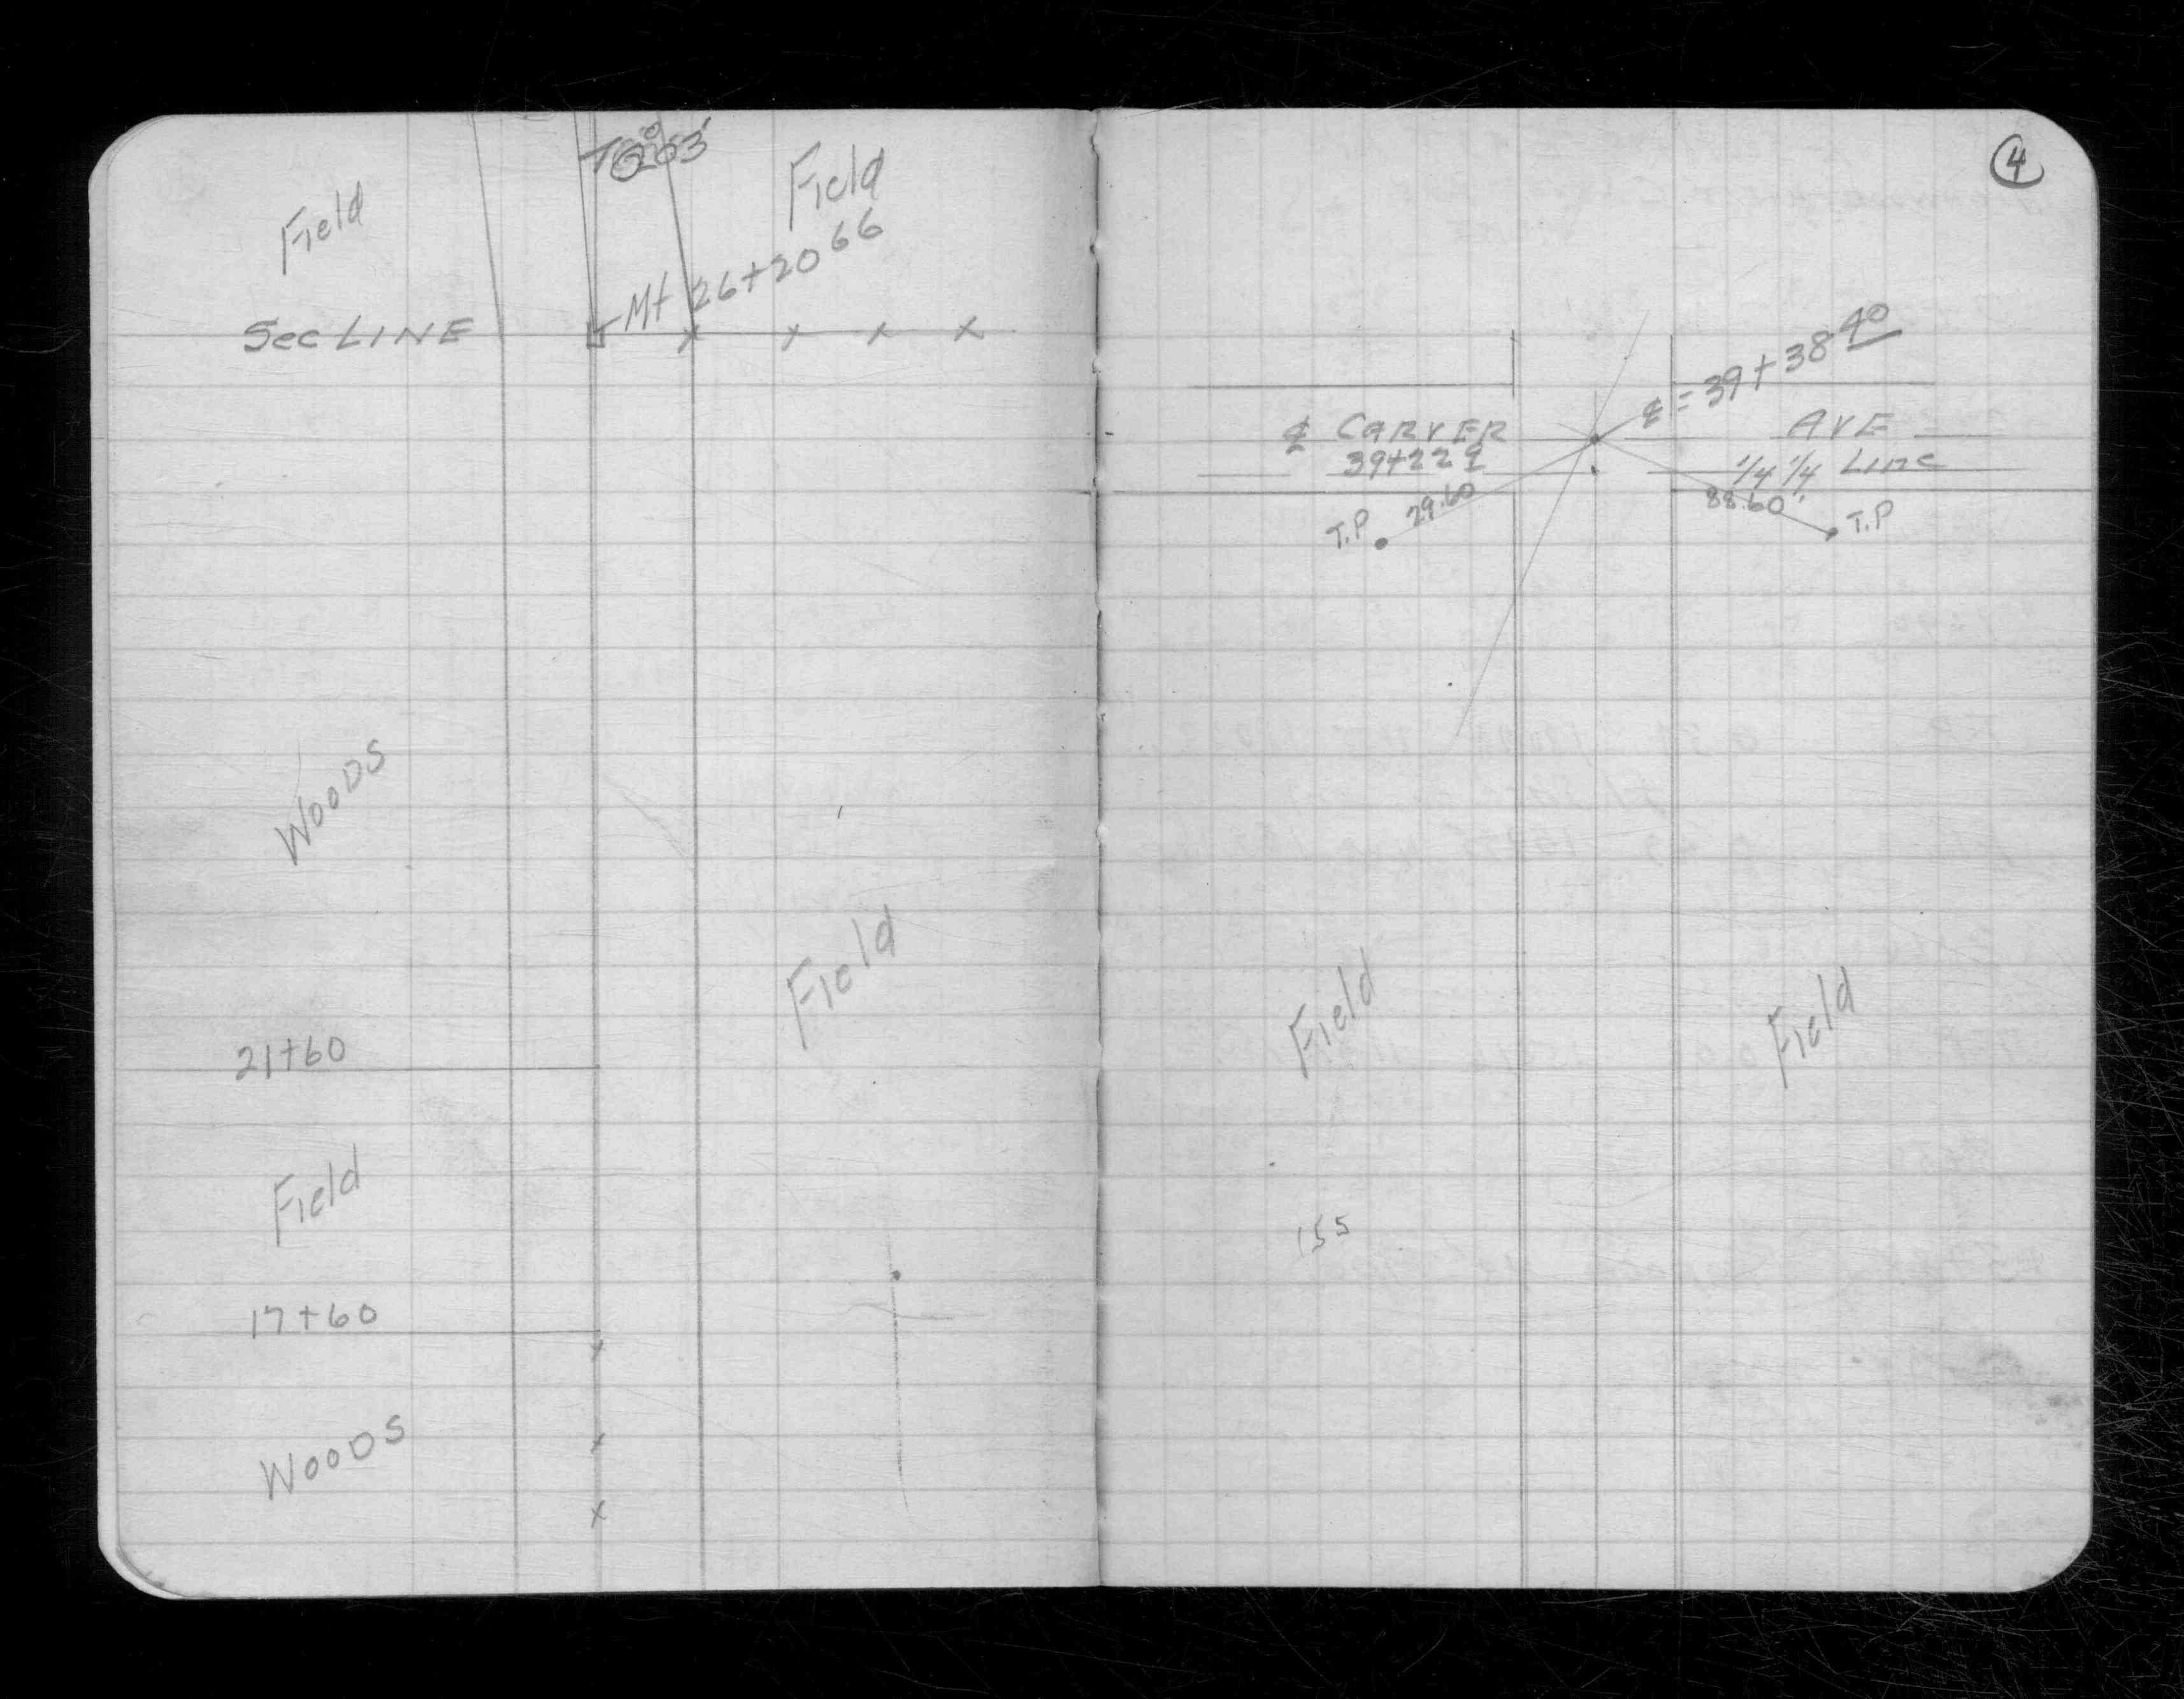 Field
Field
Mt 26+20 66
Sec LINE
Woods
Field
21+60
Field
17+60
Woods
4
℄ = 39+38 40
℄ CARVER AVE
39+22 9 1/4 1/4 Line
T.P 29.60 88.60 T.P
Field Field
155